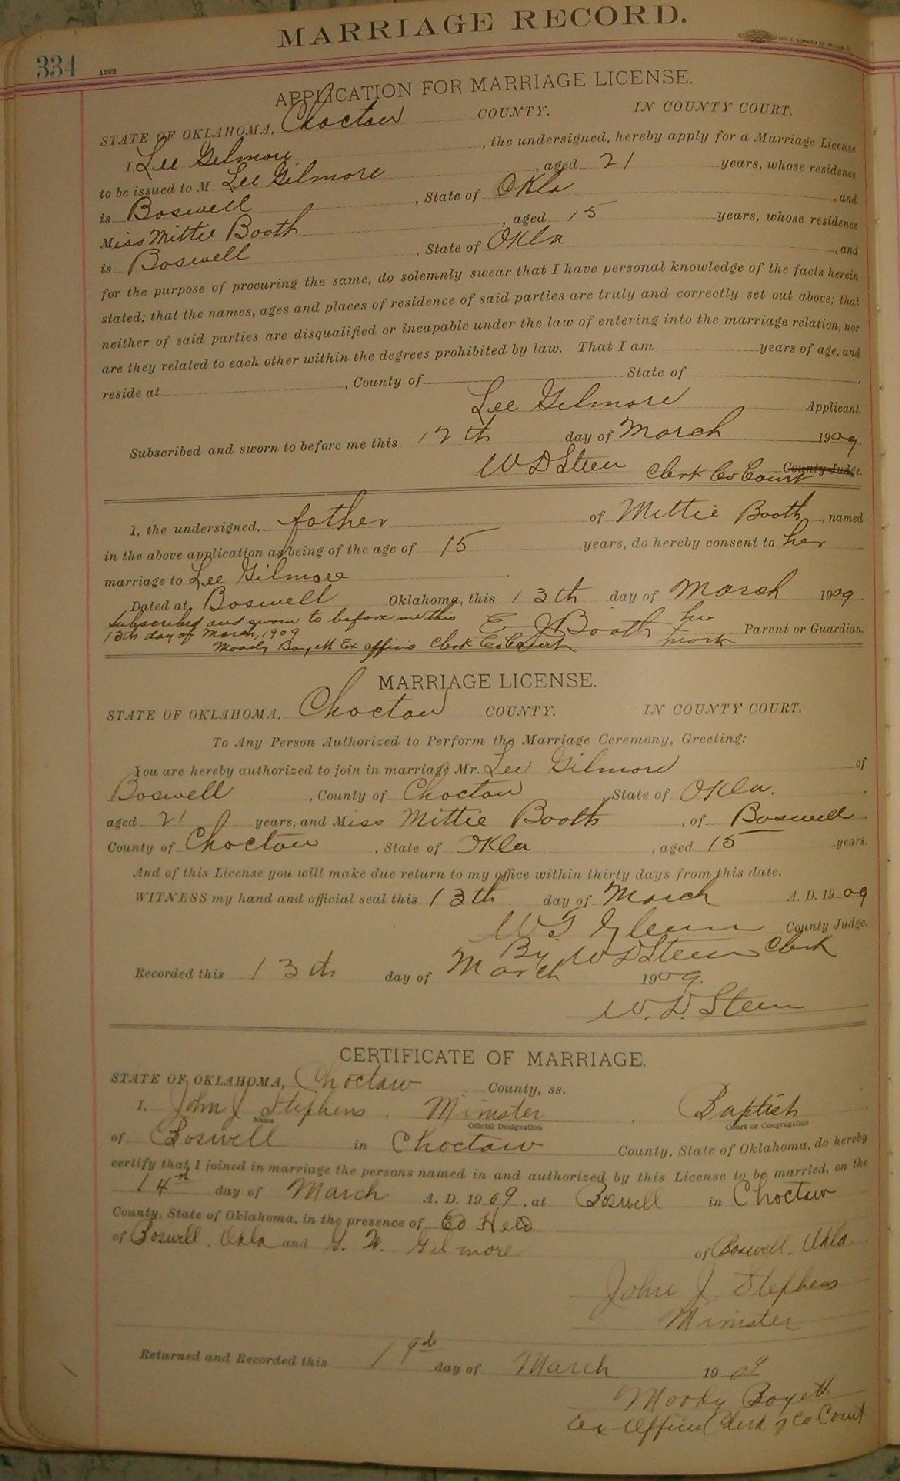 MARRIAGE RECORD.
334
APPLICATION FOR MARRIAGE LICENSE.
STATE OF OKLAHOMA, Choctaw COUNTY. IN COUNTY COURT.
I, Lee Gilmore, the undersigned, hereby apply for a Marriage License
to be issued to M Lee Gilmore, aged 21 years, whose residence
is Boswell, State of Okla, and
Miss Mittie Booth, aged 15 years, whose residence
is Boswell, State of Okla, and
for the purpose of procuring the same, do solemnly swear that I have personal knowledge of the facts herein
stated; that the names, ages and places of residence of said parties are truly and correctly set out above; that
neither of said parties are disqualified or incapable under the law of entering into the marriage relation, nor
are they related to each other within the degrees prohibited by law. That I am years of age, and
reside at , County of State of
Lee Gilmore Applicant.
Subscribed and sworn to before me this 12th day of March 1909.
W D Steen Clerk Co Court County Judge.
I, the undersigned, father of Mittie Booth, named
in the above application as being of the age of 15 years, do hereby consent to her
marriage to Lee Gilmore
Dated at Boswell Oklahoma, this 13th day of March 1909
Subscribed and sworn to before me this
13th day of March, 1909
E J Booth his mark Parent or Guardian.
Moody Boyett Ex officio Clerk Co Court
MARRIAGE LICENSE.
STATE OF OKLAHOMA, Choctaw COUNTY. IN COUNTY COURT.
To Any Person Authorized to Perform the Marriage Ceremony, Greeting:
You are hereby authorized to join in marriage Mr. Lee Gilmore of
Boswell, County of Choctaw, State of Okla.
aged 21 years, and Miss Mittie Booth, of Boswell
County of Choctaw, State of Okla, aged 15 years.
And of this License you will make due return to my office within thirty days from this date.
WITNESS my hand and official seal this 13th day of March A. D. 1909
W T Glenn County Judge.
By W D Steen Clerk
Recorded this 13th day of March 1909.
W. D. Steen
CERTIFICATE OF MARRIAGE.
STATE OF OKLAHOMA, Choctaw County, ss.
I, John J Stephens Minister Baptist
Name Official Designation Court or Congregation
of Boswell in Choctaw County, State of Oklahoma, do hereby
certify that I joined in marriage the persons named in and authorized by this License to be married, on the
14th day of March A. D. 1909, at Boswell in Choctaw
County, State of Oklahoma, in the presence of Ed
of Boswell, Okla and Gilmore of Boswell, Okla.
John J. Stephens
Minister
Returned and Recorded this 19th day of March 1909
Moody Boyett
Ex-Officio Clerk of Co Court